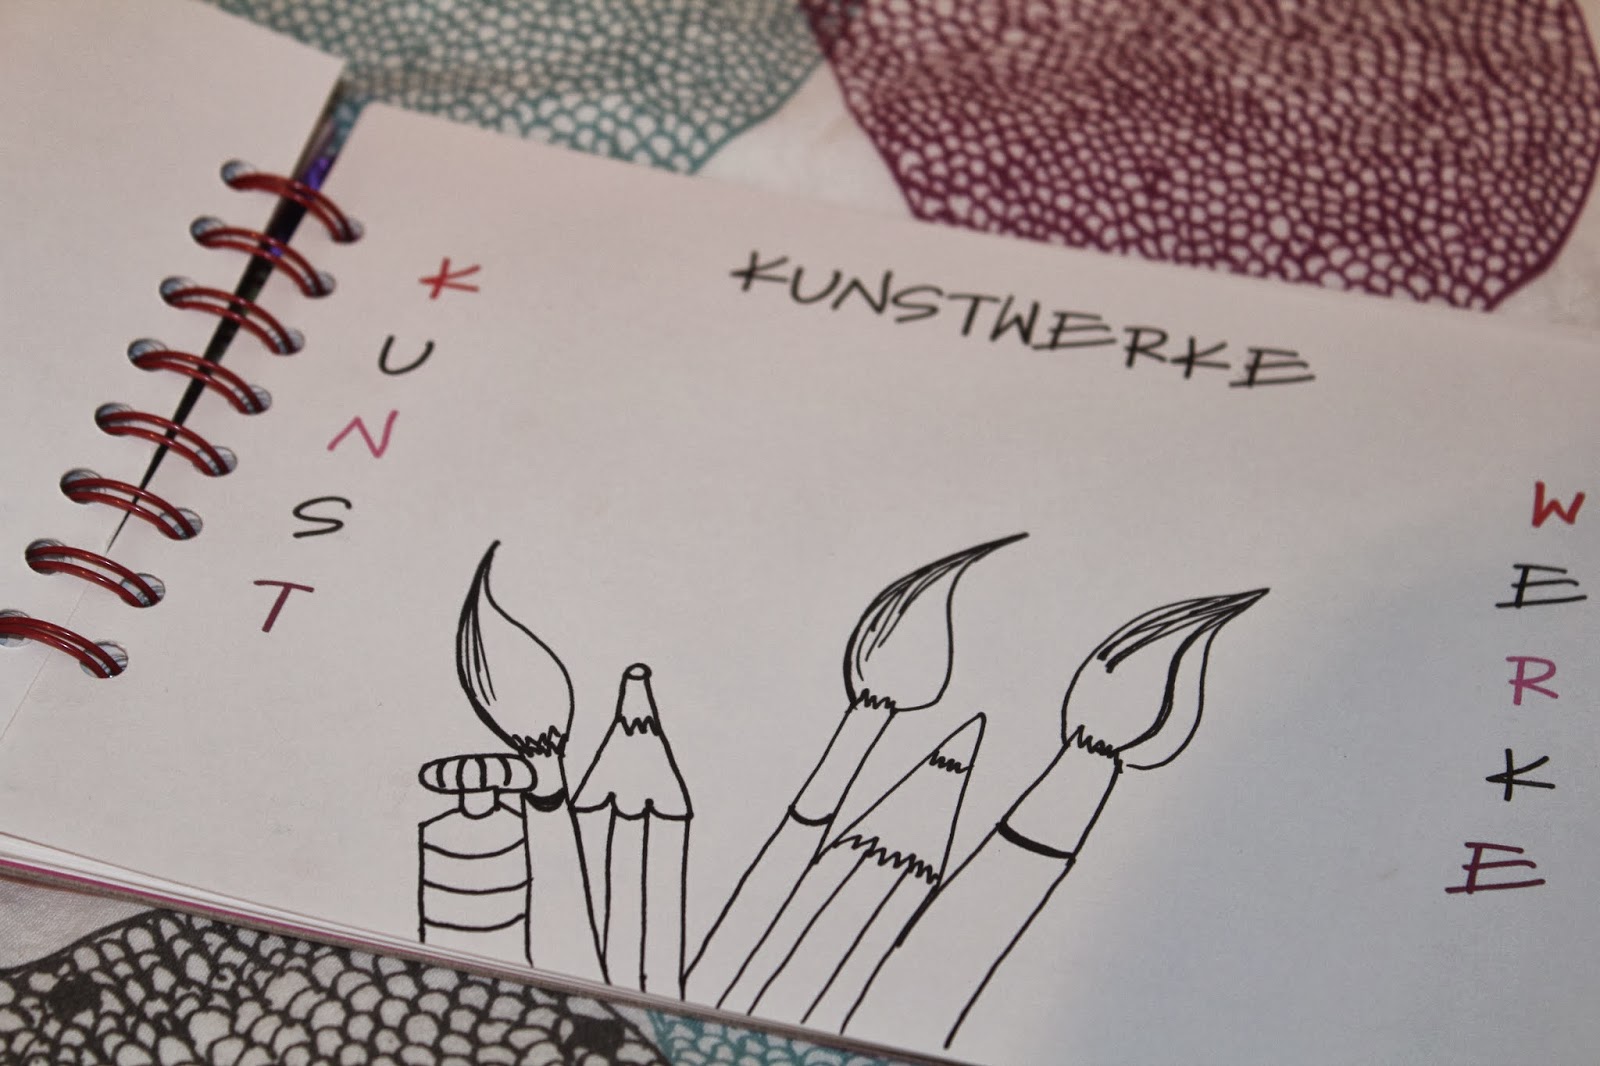 KUNSTWERKE
KUNST
WERKE